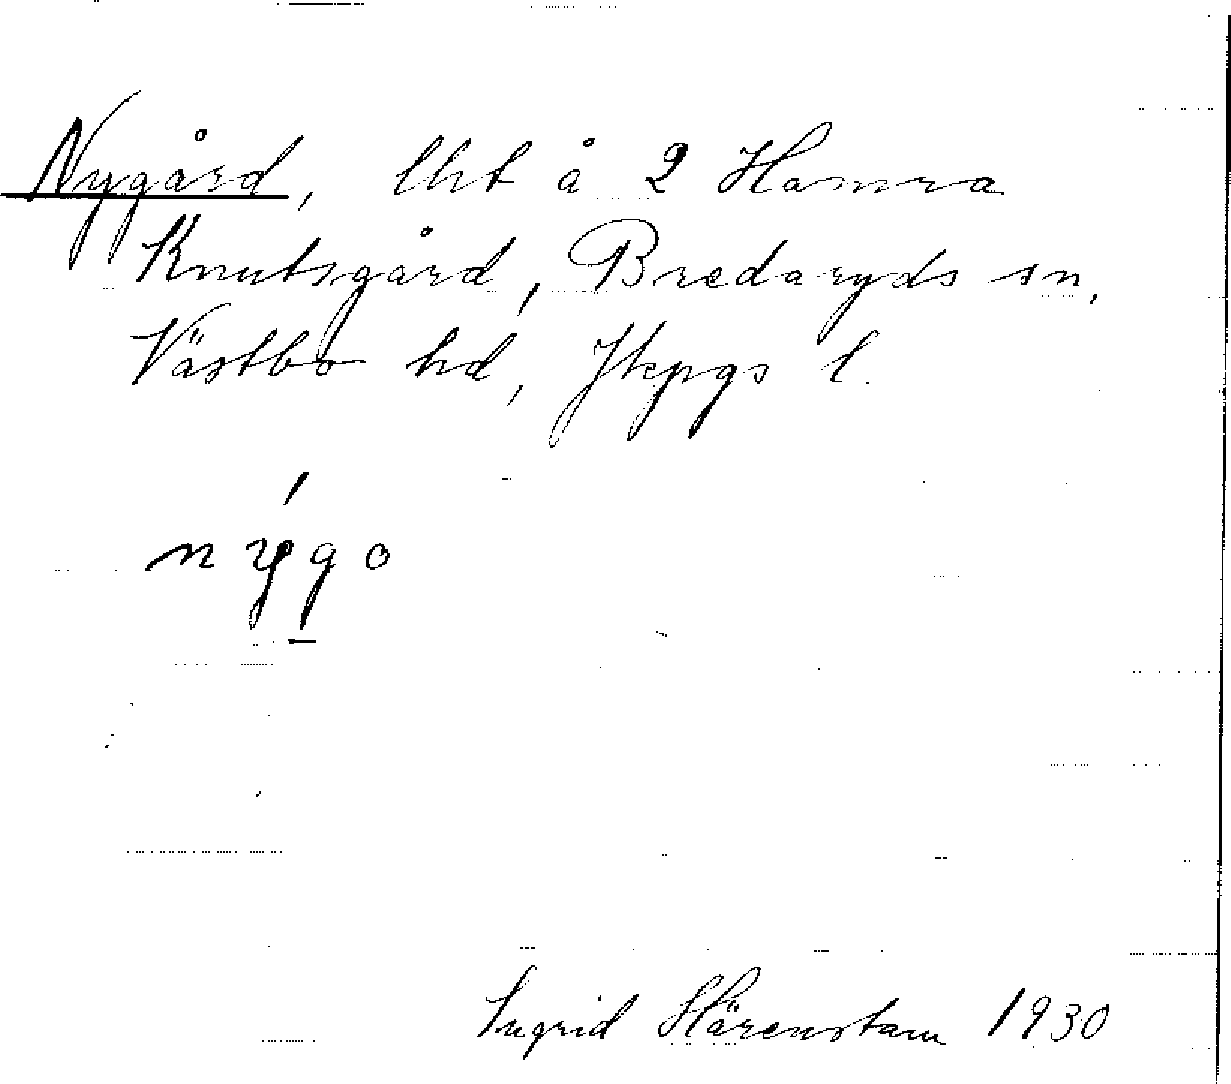 Nygård, lht å 2 Hamra
Knutsgård, Bredaryds sn,
Västbo hd, Jkpgs l.
nýgo
Ingrid Härenstam 1930